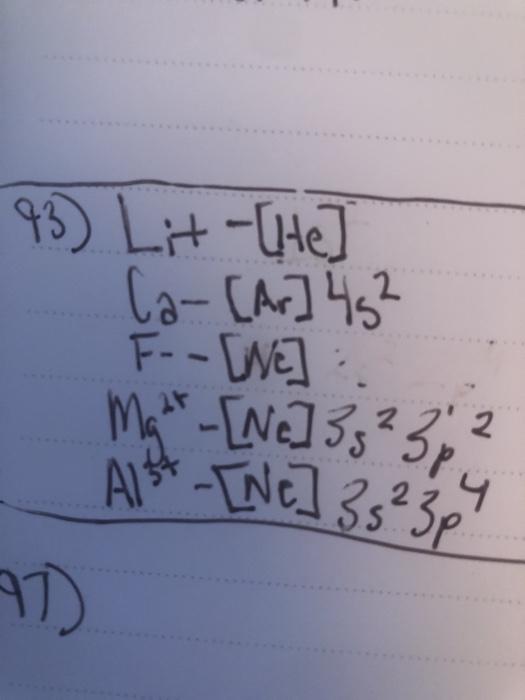 93) Li+ - [He]
Ca - [Ar] 4s²
F- - [Ne]
Mg²⁺ - [Ne] 3s² 3p²
Al³⁺ - [Ne] 3s² 3p⁴
97)